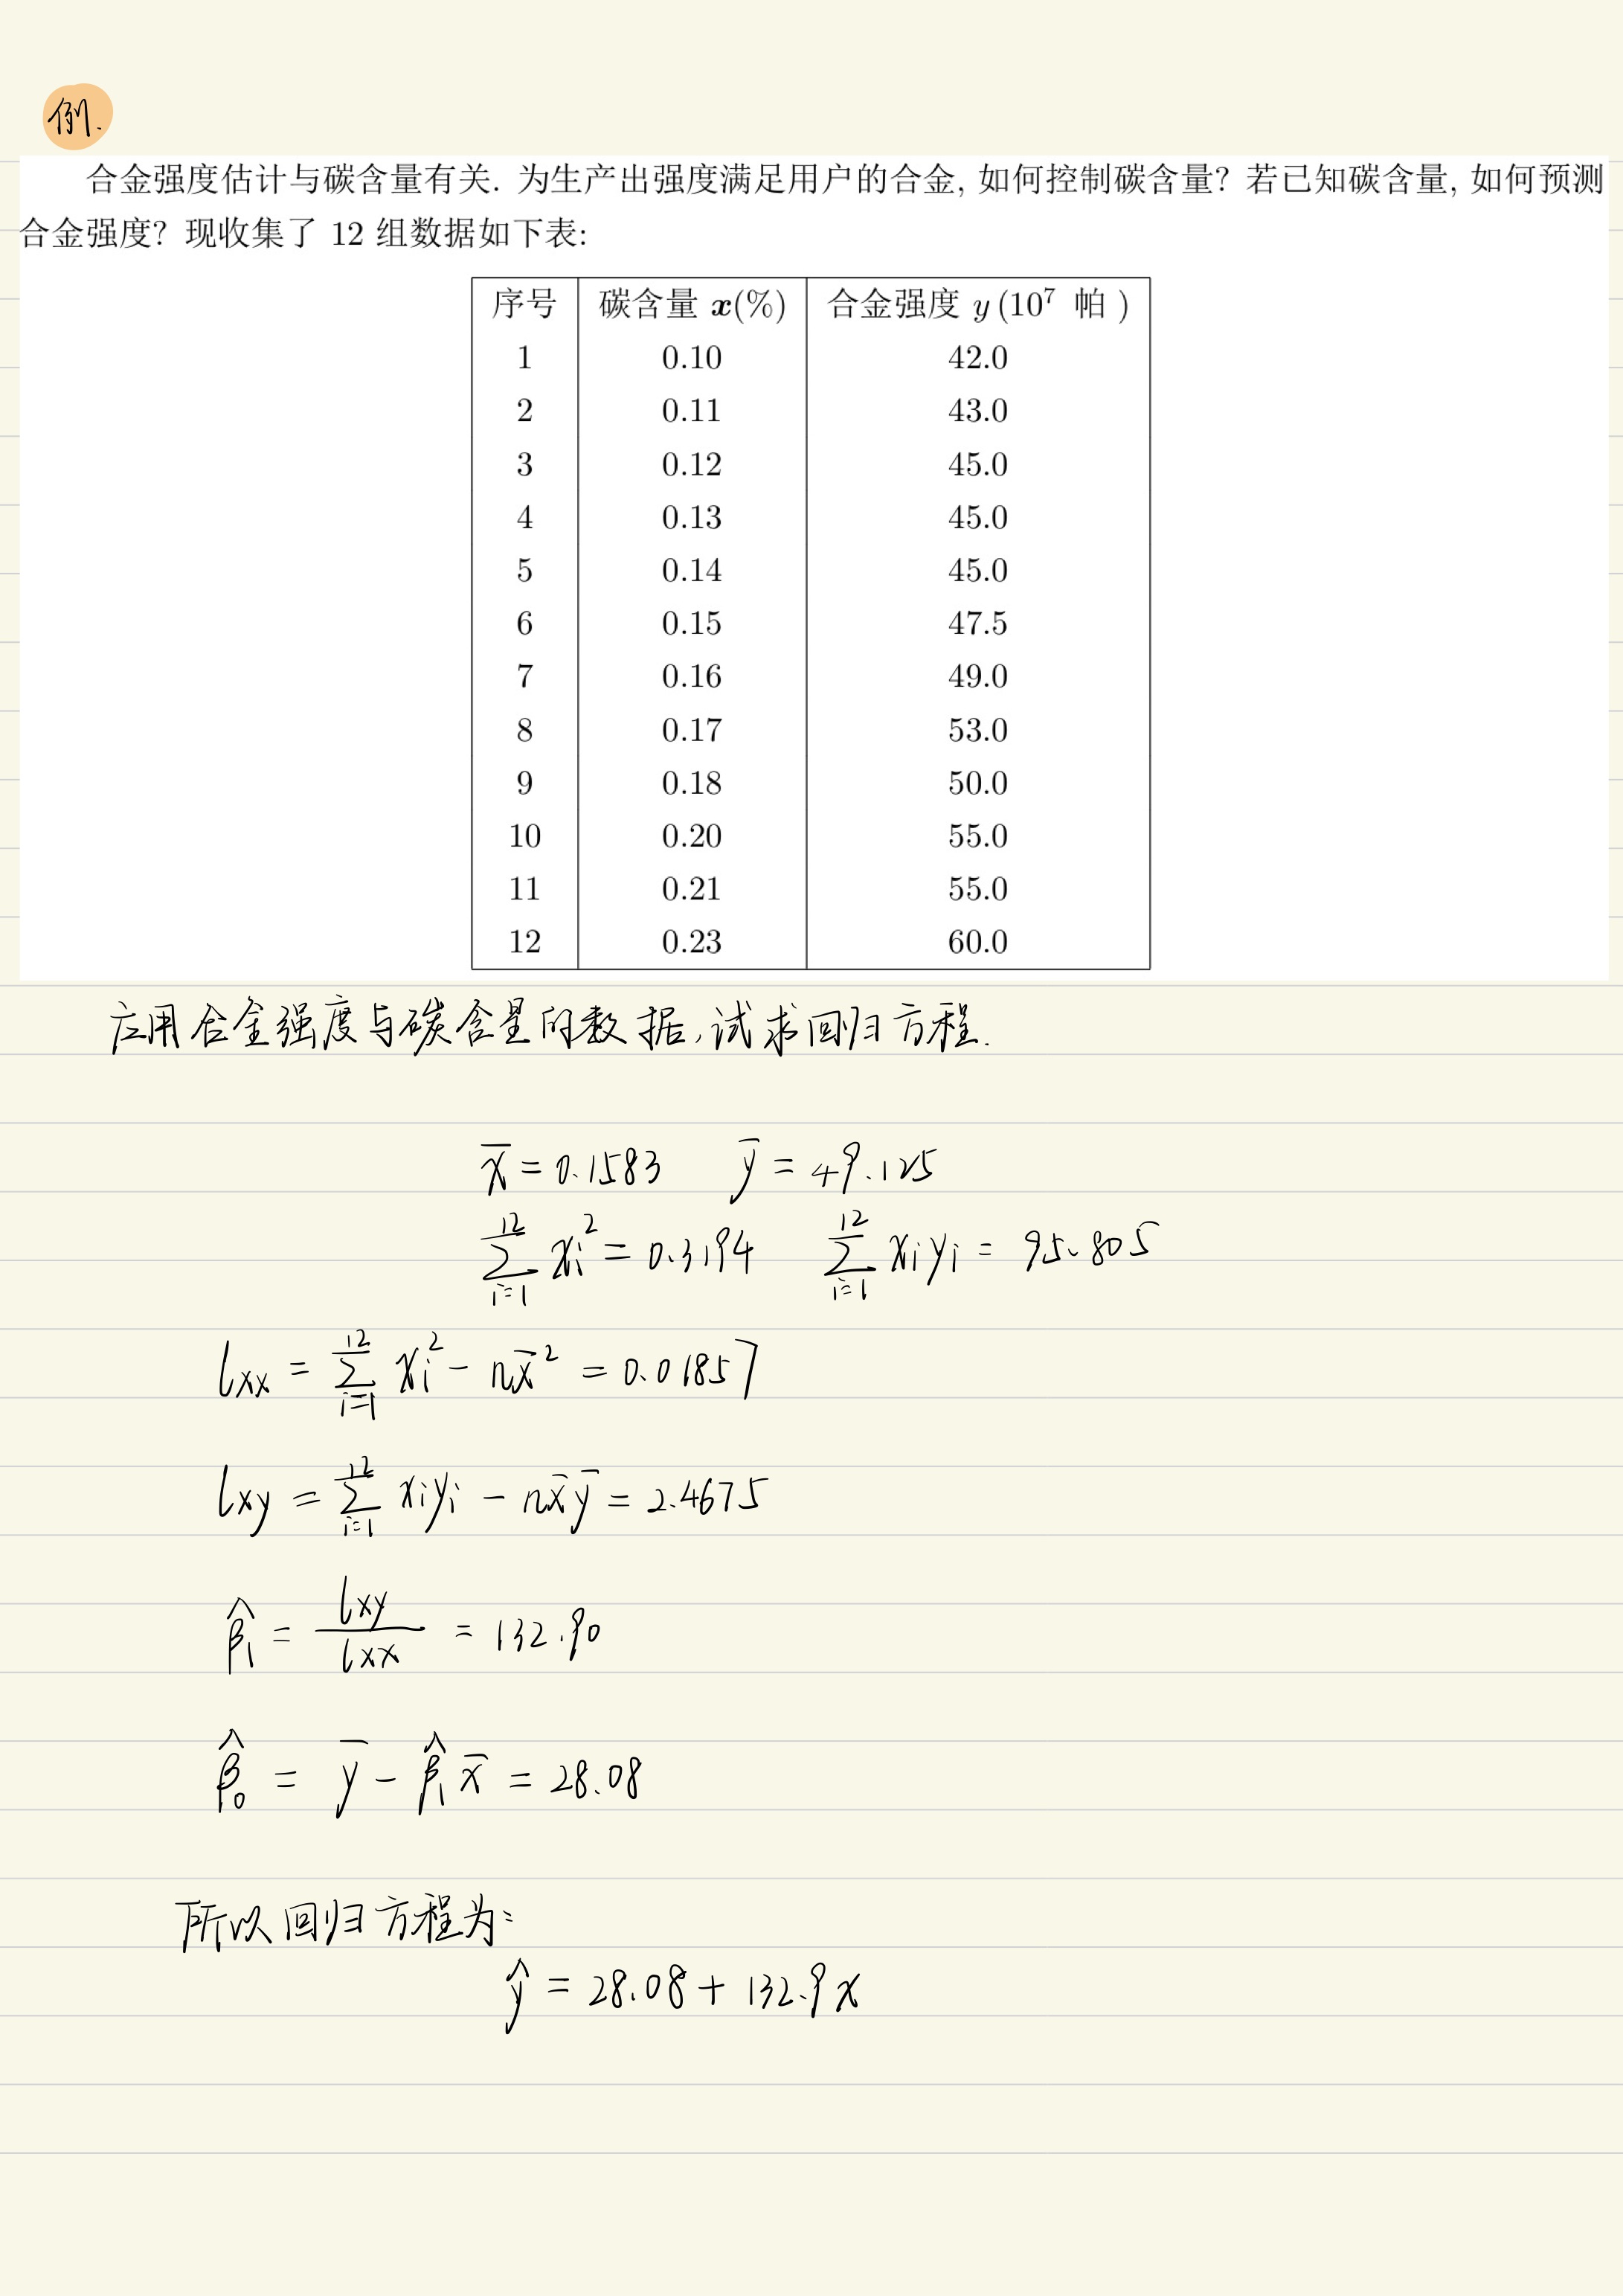 例.
合金强度估计与碳含量有关. 为生产出强度满足用户的合金, 如何控制碳含量? 若已知碳含量, 如何预测
合金强度? 现收集了 12 组数据如下表:
序号 碳含量 x(%) 合金强度 y (10⁷ 帕 )
1 0.10 42.0
2 0.11 43.0
3 0.12 45.0
4 0.13 45.0
5 0.14 45.0
6 0.15 47.5
7 0.16 49.0
8 0.17 53.0
9 0.18 50.0
10 0.20 55.0
11 0.21 55.0
12 0.23 60.0
应用合金强度与碳含量的数据,试求回归方程.
x̄ = 0.1583 ȳ = 49.125
∑_{i=1}^{12} xᵢ² = 0.3194 ∑_{i=1}^{12} xᵢyᵢ = 95.805
lxx = ∑_{i=1}^{12} xᵢ² − nx̄² = 0.01857
lxy = ∑_{i=1}^{12} xᵢyᵢ − nx̄ȳ = 2.4675
β̂₁ = lxy/lxx = 132.90
β̂₀ = ȳ − β̂₁x̄ = 28.08
所以回归方程为:
ŷ = 28.08 + 132.9x